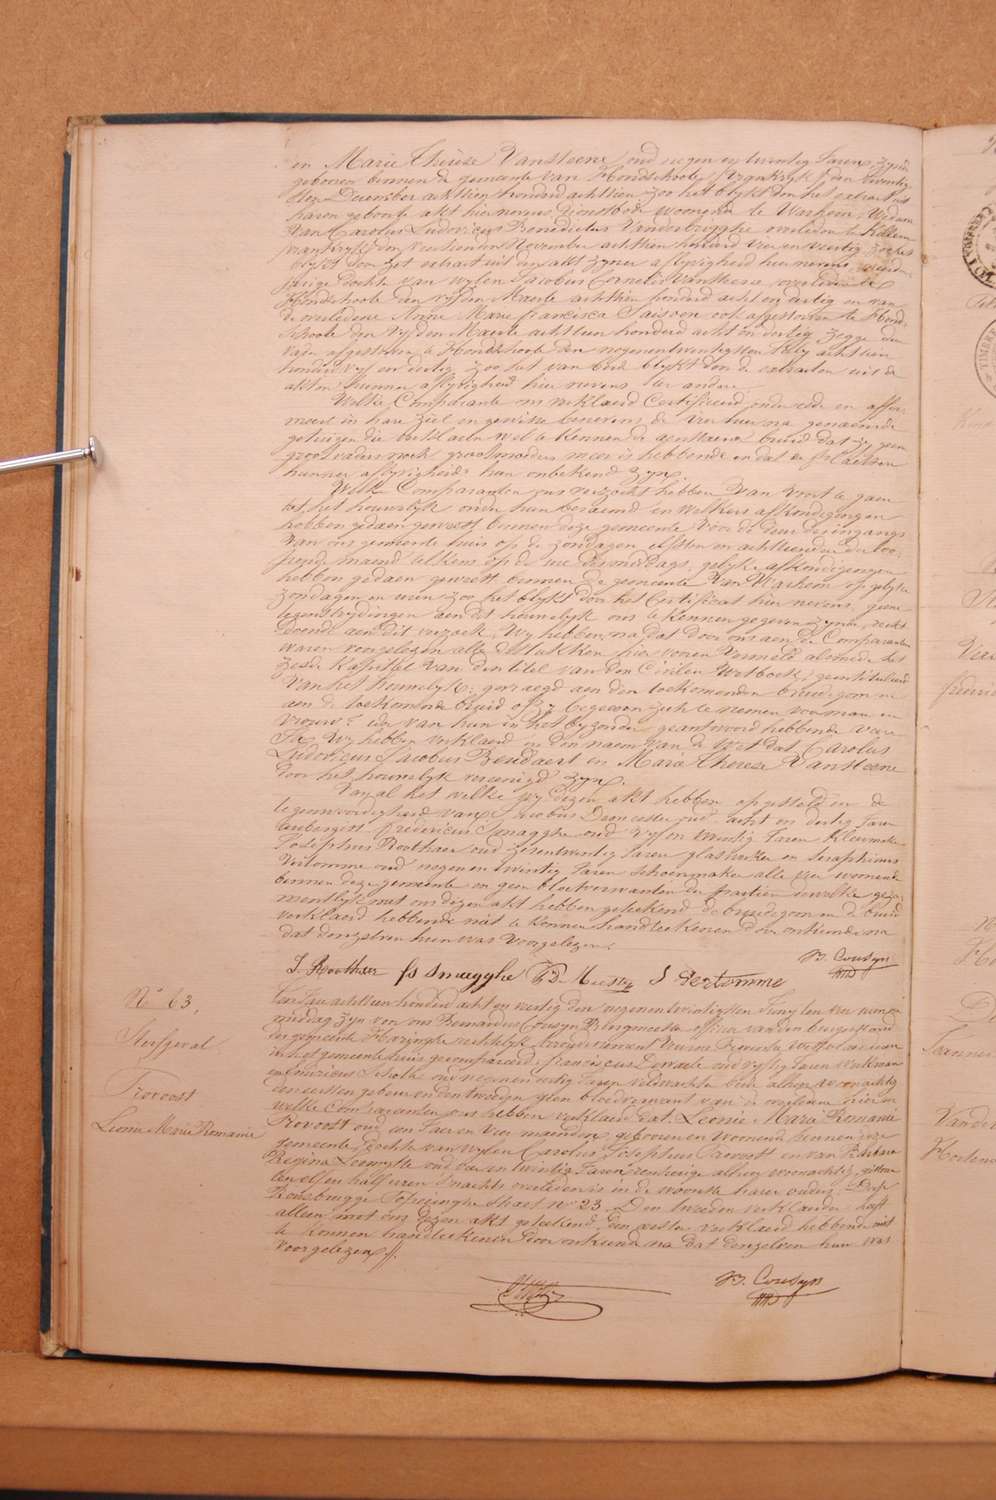 en Marie Thérèse Vansteene oud negen en twintig Jaren, zynde
geboren binnen de gemeente van Hondschoote (frankryk) den twintig-
sten December achttien honderd achttien zoo het blykt door het extract uit
haren geboorte akt hier nevens, dienstbode woonende te Warhem, Weduwe
van Carolus Ludovicus Benedictus Vanderbrigghe overleden te Killem
frankryk den November achttien honderd vier en veertig zoo het
blykt door het extract uit den akt zyner aflyvigheid hier nevens, meerder
jarige dochter van wylen Jacobus Cornelis Vansteene overleden te
Hondschoote den vyfden Maerte achttien honderd acht en dertig en van
de overledene Anne Marie francisca ook afgestorven te Hond-
schoote den vyfden Maerte achttien honderd acht en dertig zegge den
Vader afgestorven te Hondschoote den negenentwintigsten July achttien
honderd vyf en dertig zoo het van beide blykt door de extracten uit de
akten hunner aflyvigheid hier nevens ter andere.
Welke Comparante ons verklaerd Certificeerd onder eede en affir-
meert in hare ziel en gewisse benevens de vier hier na genaemde
getuigen die verklaeren wel te kennen de aenstaende bruid dat zy geen
grootvaders noch grootmoeders meer is hebbende en dat de plaetsen
hunner aflyvigheid hun onbekend zyn.
Welke Comparanten ons verzocht hebben van voort te gaen
tot het houwelyk onder hun beraemd en welkers afkondigingen
hebben gedaen geweest binnen deze gemeente voor de deur des ingangs
van ons gemeente huis op de zondagen elfsten en achttienden der loo-
pende maend telkens op de ure des middags, gelyke afkondigingen
hebben gedaen geweest binnen de gemeente van Warhem op gelyke
zondagen en uren zoo het blykt door het Certificaet hier nevens, geene
tegenstrydigingen aen dit houwelyk ons te kennen gegeven zynde, recht
doende aen dit verzoek, Wy hebben, na dat door ons aen de Comparanten
waren voorgelezen alle de stukken hier voren vermeld alsmede het
zesde kapittel van den titel van den Civilen Wetboek, geintituleerd
Van het Houwelyk; gevraegd aen den toekomenden bruidegom en
aen de toekomende bruid of zy begeeren zich te nemen voor man en
vrouw? ider van hun in het byzonder geantwoord hebbende van
Ja, Wy hebben verklaerd in den naem van de Wet dat Carolus
Ludovicus Jacobus Beudaert en Marie Therese Vansteene
door het houwelyk vereenigd zyn.
Van al het welke wy dezen akt hebben opgesteld in de
tegenwoordigheid van Jacobus oud acht en dertig Jaren
herbergier fredericus Smagghe oud vyf en twintig Jaren kleermaker
Josephus Roothaer oud zevenentwintig Jaren glasmaker en Seraphinus
Vertomme oud negen en twintig Jaren schoenmaker alle vier woonende
binnen deze gemeente en geen bloetverwanten der partien dewelke geza-
mentlyk met ons dezen akt hebben geteekend de bruidegom en de bruid
verklaerd hebbende niet te konnen handteekenen door onkunde na
dat denzelven hun was voorgelezen.
J. Roothaer fs Smagghe S Vertomme B. Cousyn
N° 63.
Sterfgeval
Provoost
Leonie Marie Romanie
Ten Jare achttien honderd acht en veertig den negenentwintigsten Juny ten vier uren na
middag zyn voor ons Bernardus Cousyn Borgmeester officier van den burgerstand
der gemeente Haringhe rechtelyk arrondissement Veurne Provintie West Vlaenderen
in het gemeentehuis gecompareerd: franciscus Dewaele oud vyftig Jaren Werkman
en Mauritius Scholte oud negenenveertig Jaren veldwachter beide alhier woonachtig
den eersten gebuer en den tweeden geen bloedverwant van de overledene hierna
welke comparanten ons hebben verklaerd dat Leonie Marie Romanie
Provoost oud een Jaer en vier maenden geboren en woonende binnen deze
gemeente dochter van wylen Carolus Josephus Provoost en van Barbara
Regina Leenvytte oud vier en twintig Jaren, renteniege alhier woonachtig, gisteren
ten elf en half uren snachts overleden is in de woonste harer ouders Dorp
Rousbrugge Poperinghe straet n° 23. Den tweeden verklaerder heeft
alleen met ons dezen akt geteekend, den eersten verklaerd hebbende niet
te konnen handteekenen door onkunde na dat denzelven hun was
voorgelezen.
B. Cousyn